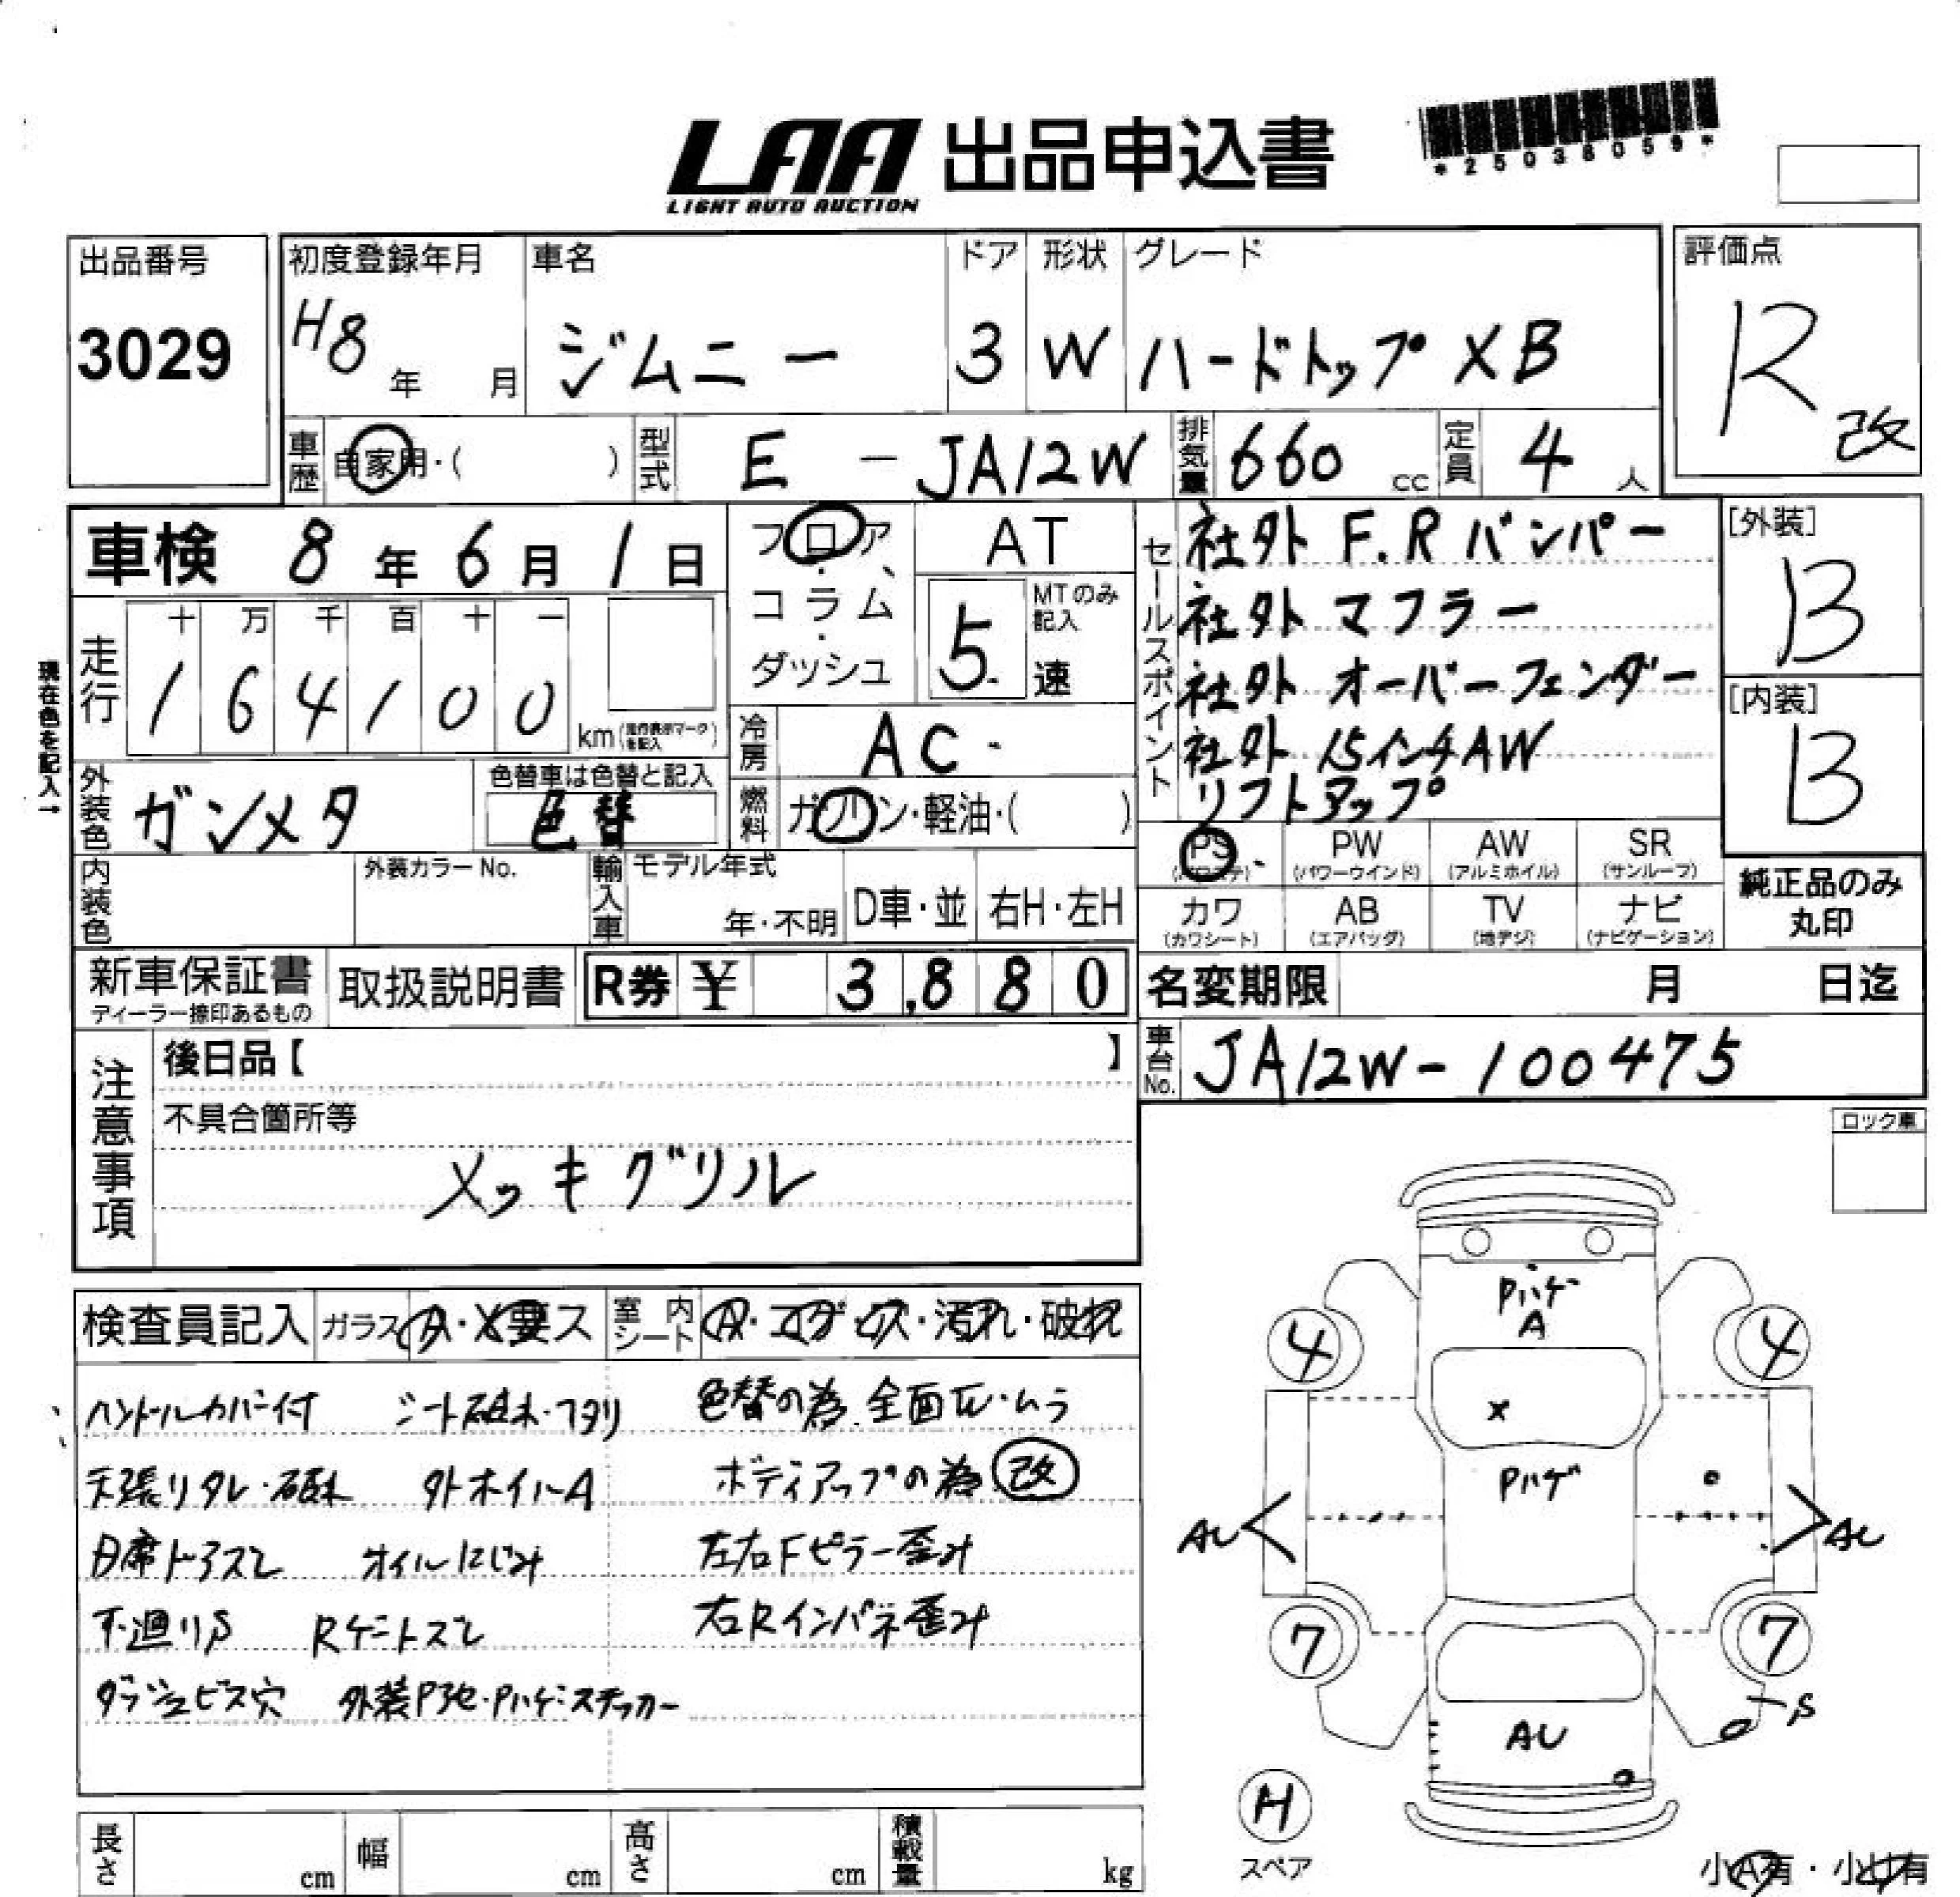 LAA 出品申込書
LIGHT AUTO AUCTION
*25038059*
出品番号
3029
初度登録年月
H8 年 月
車名
ジムニー
ドア
3
形状
W
グレード
ハードトップ XB
評価点
R 改
車歴
自家用・( )
型式
E - JA12W
排気量
660 cc
定員
4 人
車検 8年 6月 1日
フロア・コラム・ダッシュ
AT
MTのみ記入
5 速
セールスポイント
社外 F.R バンパー
社外 マフラー
社外 オーバーフェンダー
社外 15インチAW
リフトアップ
[外装]
B
[内装]
B
現在色を記入→
走行
十 万 千 百 十 一
1 6 4 1 0 0 km
冷房
AC
外装色
ガンメタ
色替車は色替と記入
色替
燃料
ガソリン・軽油・( )
PS (パワステ)
PW (パワーウインド)
AW (アルミホイル)
SR (サンルーフ)
カワ (カワシート)
AB (エアバッグ)
TV (地デジ)
ナビ (ナビゲーション)
純正品のみ
丸印
内装色
外装カラーNo.
輸入車
モデル年式
年・不明
D車・並
右H・左H
新車保証書
ディーラー捺印あるもの
取扱説明書
R券 ¥ 3,880
名変期限 月 日迄
車台No.
JA12W-100475
注意事項
後日品【 】
不具合箇所等
メッキグリル
ロック車
検査員記入
ガラス A・X要ス
室内シート A・コゲ・ス・汚れ・破れ
ハンドルカバー付 シート破れ・フタリ 色替の為 全面W・ムラ
天張リタレ・破れ 外ホイルA ボディアップの為 改
日席ドアズレ オイルにじみ 左右Fピラー歪み
下廻りS Rゲートズレ 右Rインパネ歪み
ダッシュビス穴 外装P劣化・Pハゲ・ステッカー
Pハゲ
A
4
4
X
Pハゲ
AU
AU
7
7
S
AU
H
スペア
小A有・小U有
長さ cm
幅 cm
高さ cm
積載量 kg